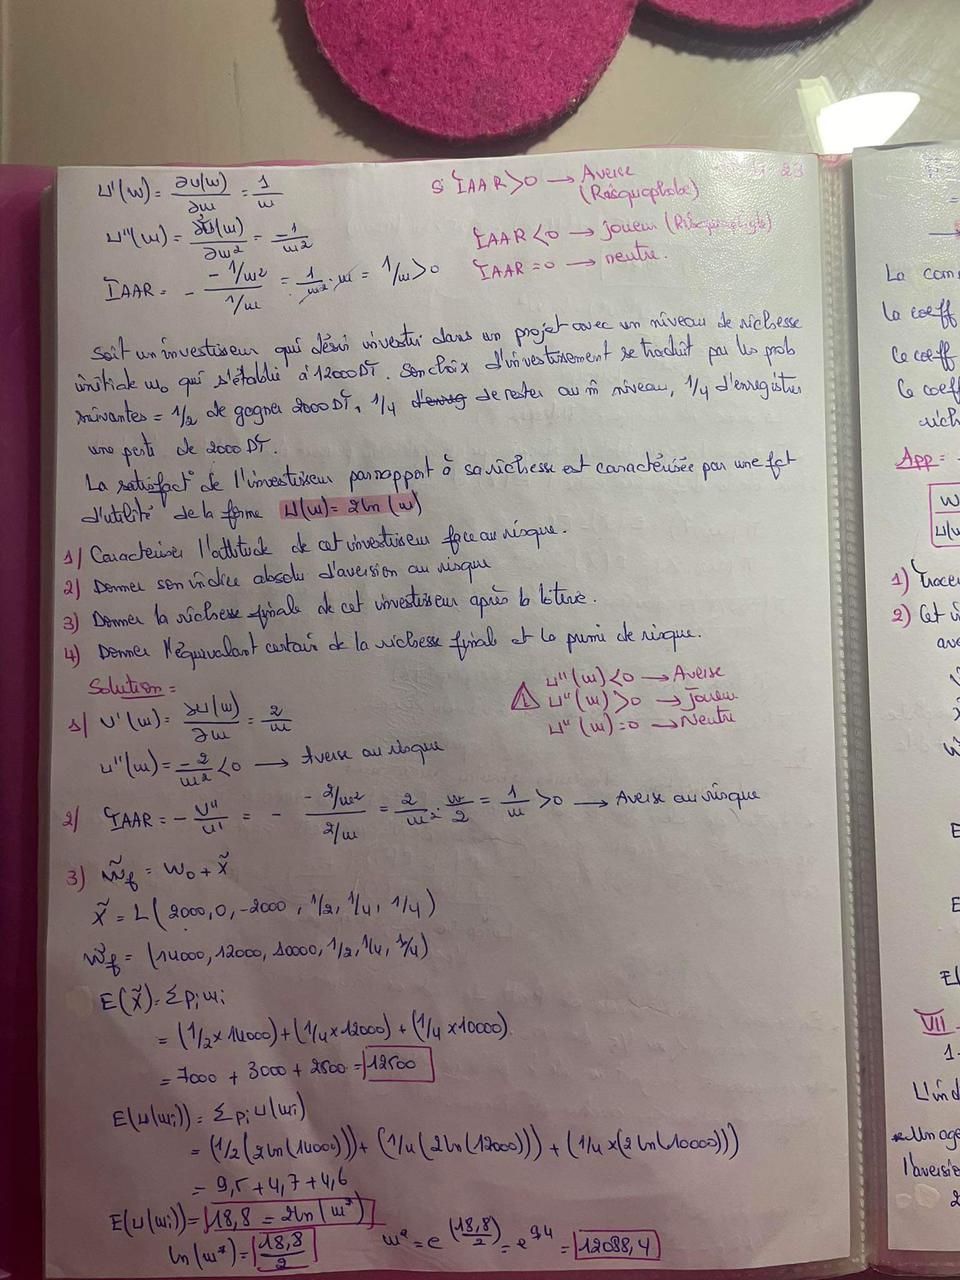 U'(w) = ∂U(w)/∂w = 1/w
U''(w) = ∂U'(w)/∂w² = -1/w²
IAAR = - (-1/w²)/(1/w) = 1/w² · w = 1/w > 0
Si IAAR > 0 → Averse
(Risquophobe)
IAAR < 0 → joueur
IAAR = 0 → neutre.
Soit un investisseur qui désir investir dans un projet avec un niveau de richesse
initiale w0 qui s'établie à 12000DT. Son choix d'investissement se traduit par les prob
suivantes = 1/2 de gagner 2000DT, 1/4 de rester au m̂ niveau, 1/4 d'enregistrer
une perte de 2000DT.
La satisfact° de l'investisseur par rapport à sa richesse est caractérisée par une fct
d'utilité de la forme U(w) = 2ln(w)
1/ Caractériser l'attitude de cet investisseur face au risque.
2) Donner son indice absolu d'aversion au risque
3) Donner la richesse finale de cet investisseur après la loterie.
4) Donner l'équivalant certain de la richesse final et la prime de risque.
Solution =
1/ U'(w) = ∂U(w)/∂w = 2/w
U''(w) = -2/w² < 0 → Averse au risque
⚠ U''(w) < 0 → Averse
U''(w) > 0 → joueur
U''(w) = 0 → Neutre
2/ IAAR = - U''/U' = - (-2/w²)/(2/w) = 2/w² · w/2 = 1/w > 0 → Averse au risque
3) w̃f = W0 + x̃
x̃ = L(2000, 0, -2000, 1/2, 1/4, 1/4)
w̃f = (14000, 12000, 10000, 1/2, 1/4, 1/4)
E(x̃) = Σ pi wi
= (1/2 x 14000) + (1/4 x 12000) + (1/4 x 10000)
= 7000 + 3000 + 2500 = 12500
E(U(wi)) = Σ pi U(wi)
= (1/2 (2ln(14000))) + (1/4 (2ln(12000))) + (1/4 x (2ln(10000)))
= 9,5 + 4,7 + 4,6
E(U(wi)) = 18,8 = 2ln(w*)
ln(w*) = 18,8/2
w* = e^(18,8/2) = e^9,4 = 12088,4
La com
le coeff
le coeff
le coef
rich
App =
W
U(w
1) Tracer
2) Cet i
ave
E
E
E(
VII
1-
L'ind
Un age
l'aversio
2